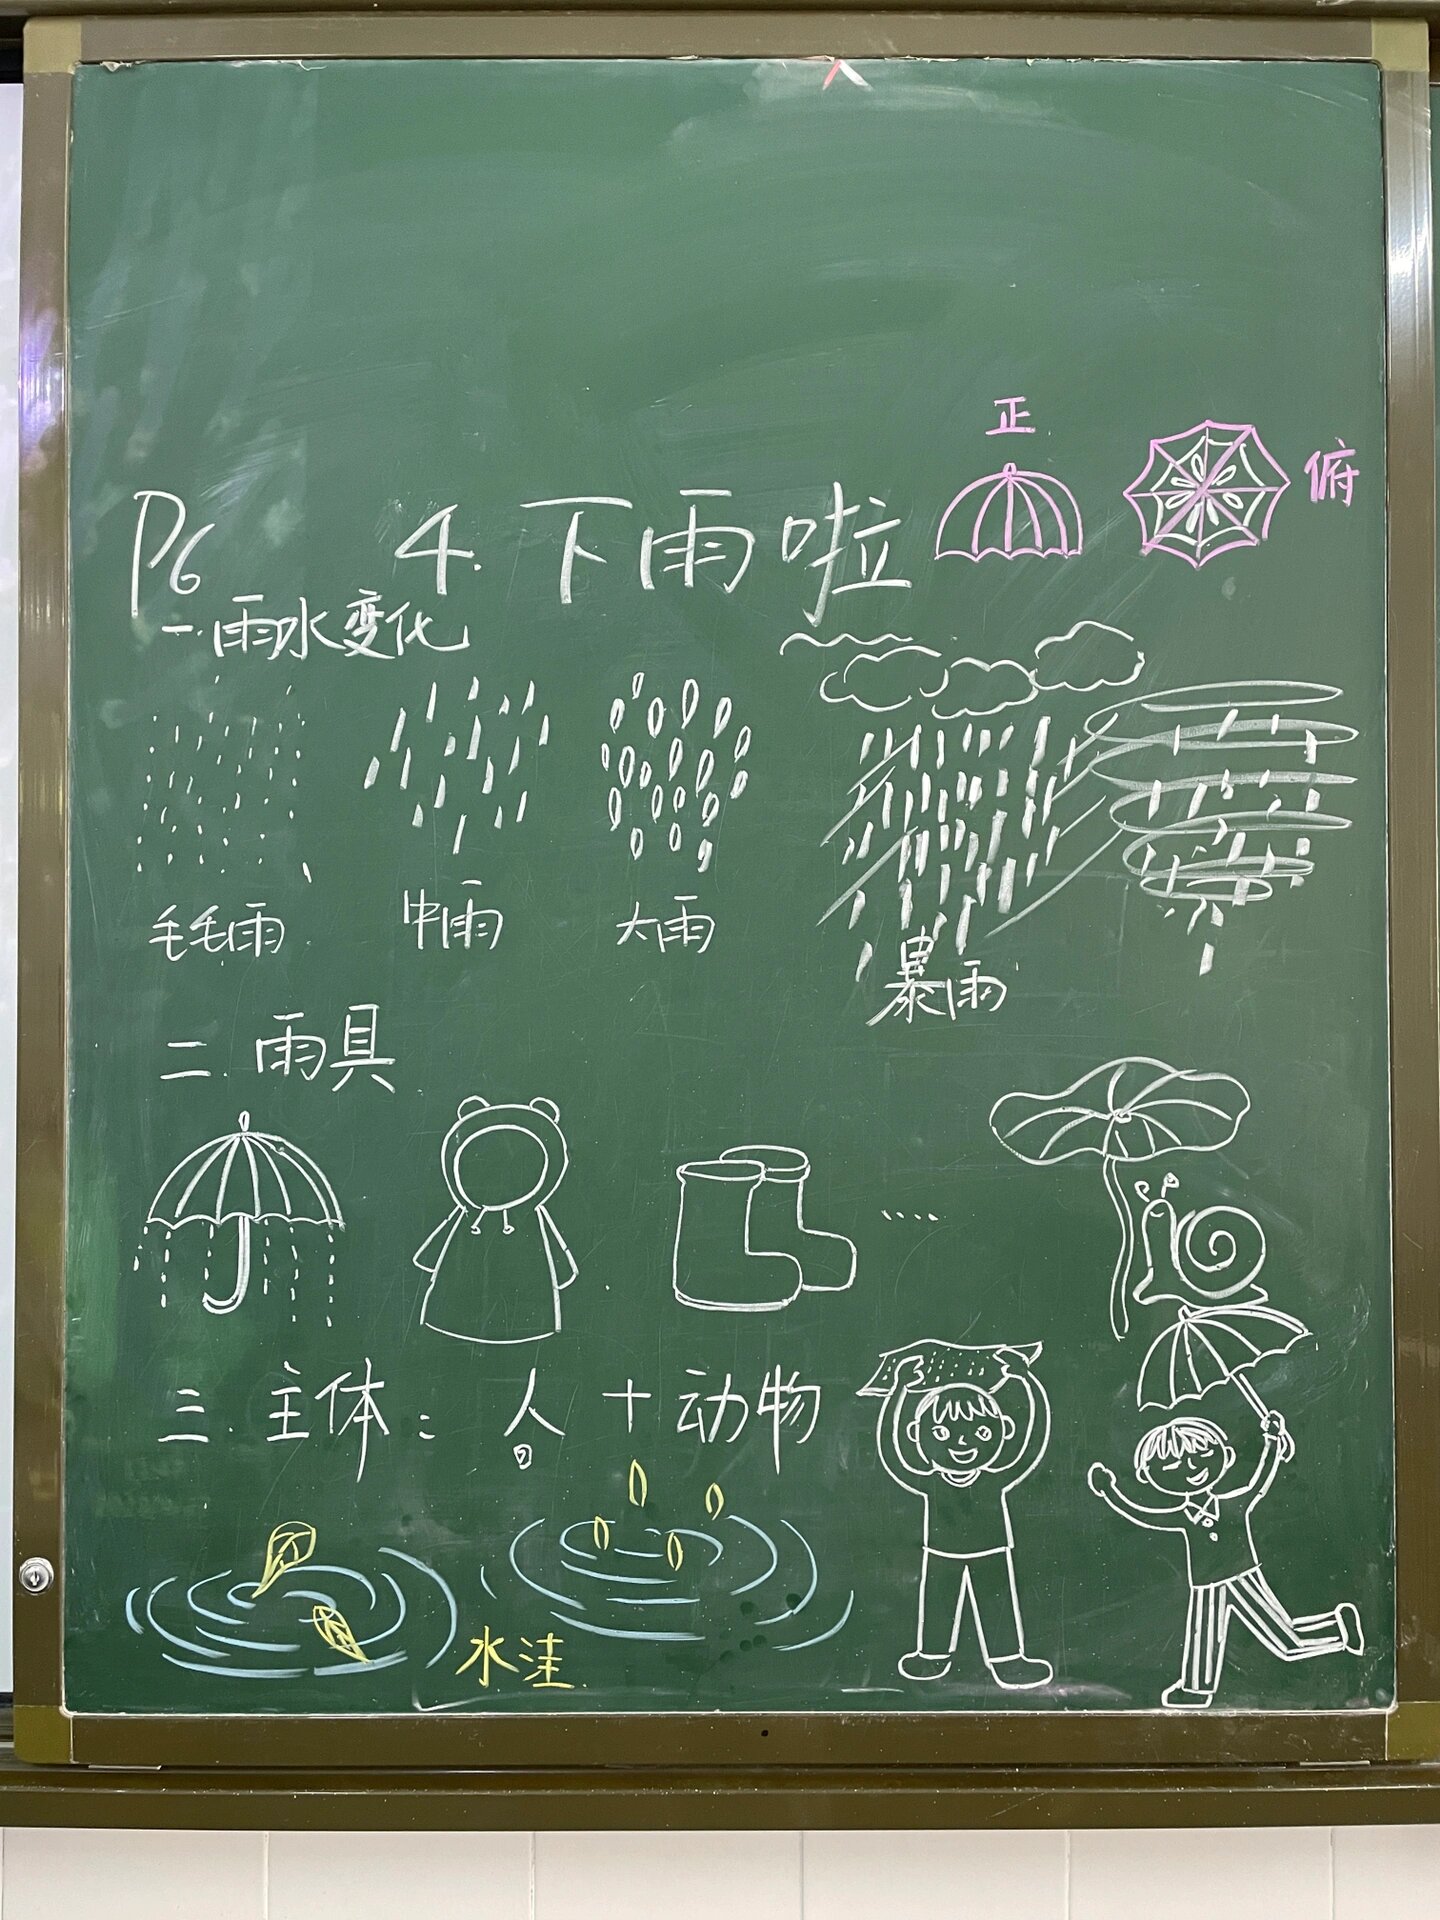 正
俯
P6 4.下雨啦
一.雨水变化
毛毛雨 中雨 大雨
暴雨
二.雨具
三.主体：人+动物
水洼